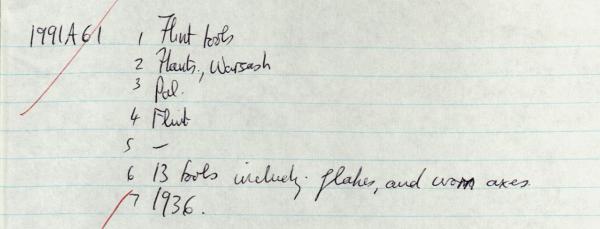 1991A61 1 Flint tools
2 Hants., Warsash
3 Pal.
4 Flint
5 –
6 13 tools includg. flakes, and worn axes.
7 1936.